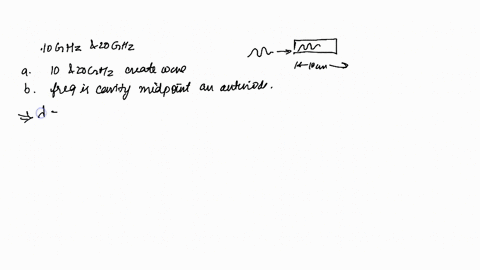 .10GHz & 20GHz
a. 10 & 20GHz create wave
b. freq is cavity midpoint an antinode.
⇒ d -
10cm